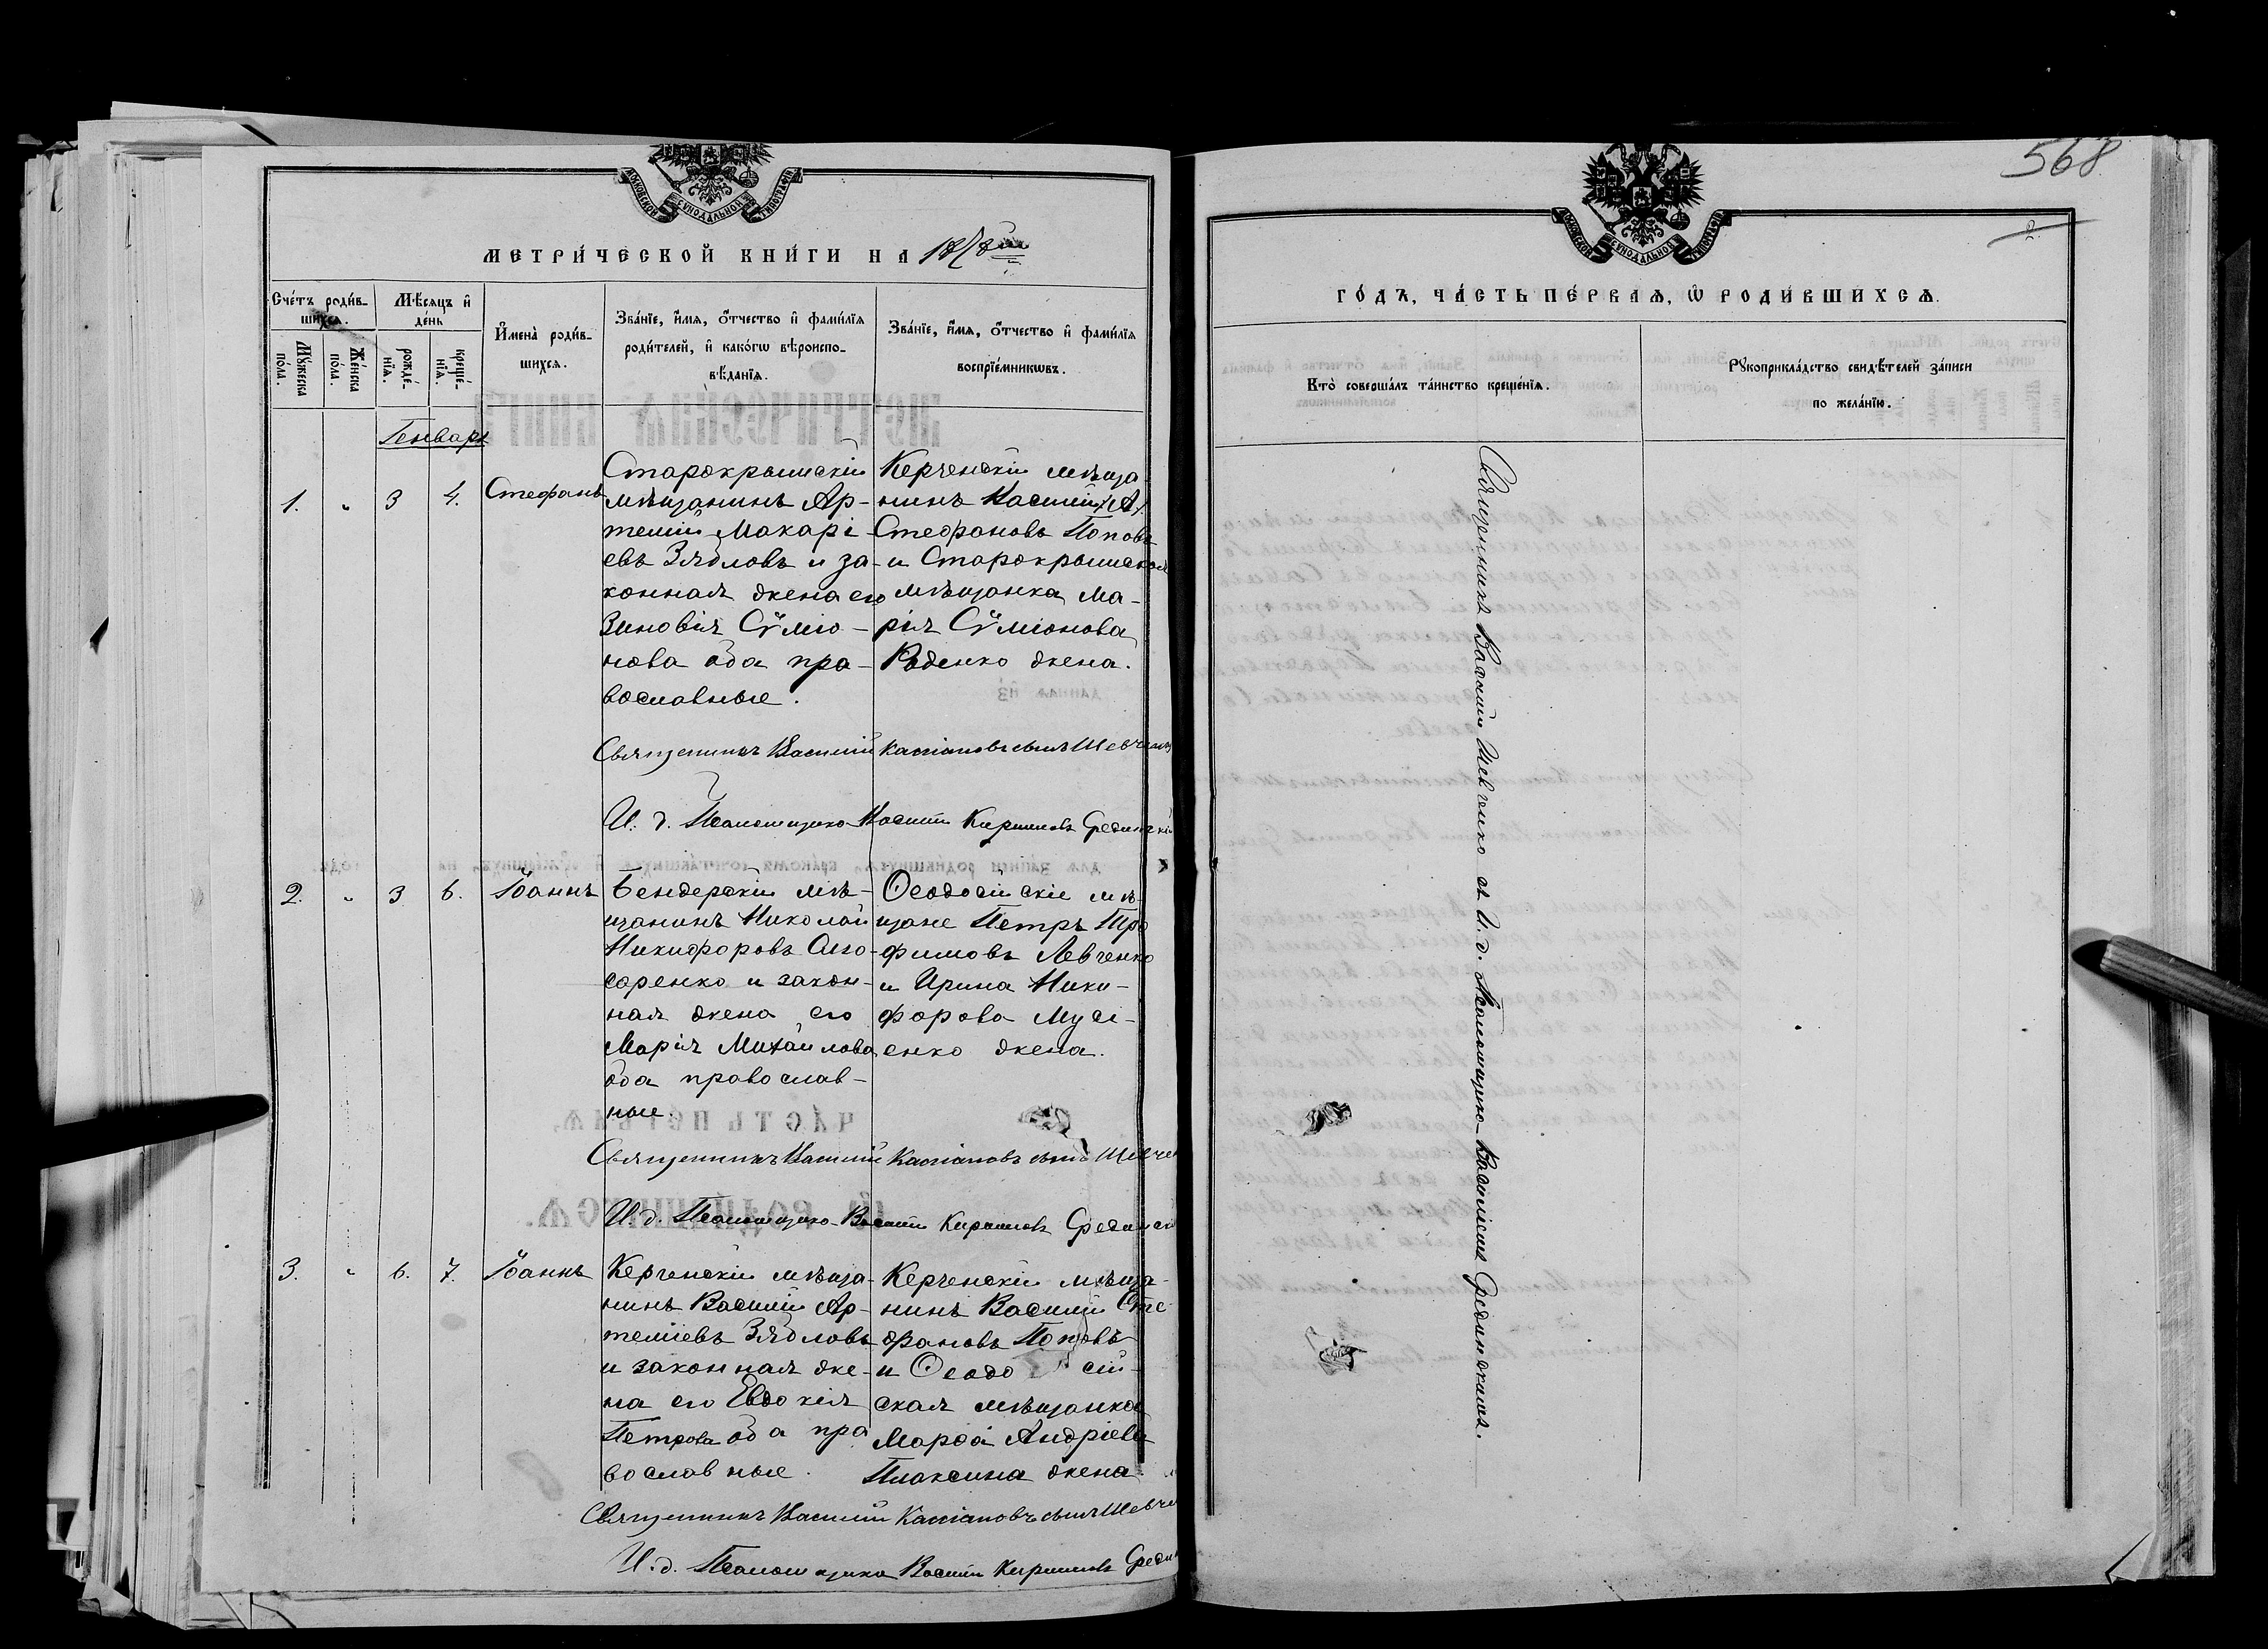 МОСКОВСКОЙ СѴНОДАЛЬНОЙ ТИПОГРАФІИ
МЕТРИ́ЧЕСКОЙ КНИ́ГИ НА 1878й
Сче́тъ роди́в-
шихсѧ.
Мѣ́сѧцъ и҆
де́нь
Мꙋ́жеска по́ла.
Же́нска по́ла.
рожде́-нїѧ.
креще́-нїѧ.
И҆мена̀ роди́в-
шихсѧ.
Зва́нїе, и҆́мѧ, ѻ҆́тчество и҆ фами́лїѧ
роди́телей, и҆ како́гѡ вѣроиспо-
вѣ́данїѧ.
Зва́нїе, и҆́мѧ, ѻ҆́тчество и҆ фами́лїѧ
воспрїе́мникѡвъ.
Генварь
1. " 3 4. Стефанъ
Старокрымскій
мѣщанинъ Ар-
темій Макарі-
евъ Зябловъ и за-
конная жена его
Зиновія Сѵміо-
нова оба пра-
вославные.
Керченскій мѣща
нинъ Василій
Стефановъ Поповъ
и Старокрымская
мѣщанка Ма-
рія Сѵміонова
Раденко жена.
Священникъ Василій Кассіановъ сынъ Шевченко
И. д. Псаломщика Василій Кириловъ Срединскій
2. " 3 6. Іоаннъ
Бендерскій мѣ-
щанинъ Николай
Никифоровъ Слю-
саренко и закон-
ная жена его
Марія Михайлова
оба православ-
ные.
Ѳеодосійскіе мѣ-
щане Петръ Тро
фимовъ Левченко
и Ирина Ники-
форова Мусі-
енко жена.
Священникъ Василій Кассіановъ сынъ Шевчен
И. д. Псаломщика Василій Кириловъ Срединск
3. " 6. 7. Іоаннъ
Керченскій мѣща-
нинъ Василій Ар-
теміевъ Зябловъ
и законная же-
на его Евдокія
Петрова оба пра
вославные.
Керченскій мѣща-
нинъ Василій Сте-
фановъ Поповъ
и Ѳеодосій-
ская мѣщанка
Марѳа Андріева
Плаксина жена
Священникъ Василій Кассіановъ сынъ Шевче
И. д. Псаломщика Василій Кириловъ Средин
568
2
МОСКОВСКОЙ СѴНОДАЛЬНОЙ ТИПОГРАФІИ
ГО́ДЪ, ЧА́СТЬ ПЕ́РВАѦ, Ѡ҆ РОДИ́ВШИХСѦ.
Кто̀ соверша́лъ та́инство креще́нїѧ.
Рꙋкоприкла́дство свидѣ́телей за́писи
по жела́нїю.
Священникъ Василій Шевченко съ И. д. Псаломщика Василіемъ Срединскимъ.